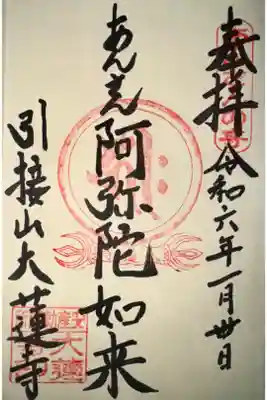 奉拝 令和六年一月卅日
あんざん阿弥陀如来
引接山大蓮寺